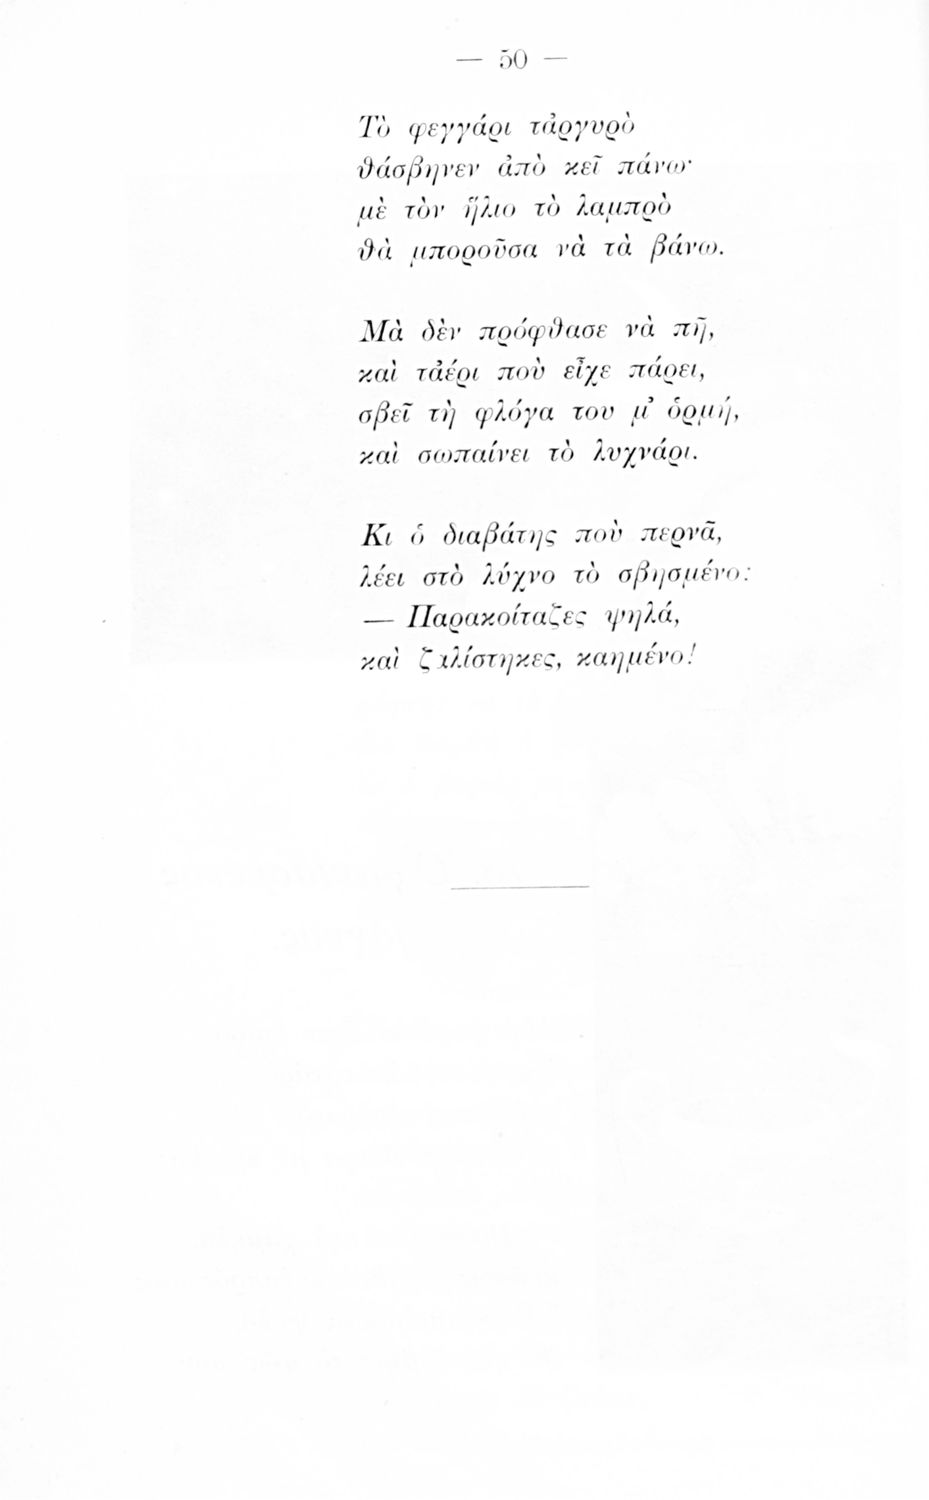 — 50 —
Τὸ φεγγάρι τἀργυρὸ
θἄσβηνεν ἀπὸ κεῖ πάνω·
μὲ τὸν ἥλιο τὸ λαμπρὸ
θὰ μποροῦσα νὰ τὰ βάνω.
Μὰ δὲν πρόφθασε νὰ πῇ,
καὶ τἀέρι ποὺ εἶχε πάρει,
σβεῖ τὴ φλόγα του μ᾿ ὁρμή,
καὶ σωπαίνει τὸ λυχνάρι.
Κι ὁ διαβάτης ποὺ περνᾶ,
λέει στὸ λύχνο τὸ σβησμένο:
— Παρακοίταζες ψηλά,
καὶ ζαλίστηκες, καημένο!